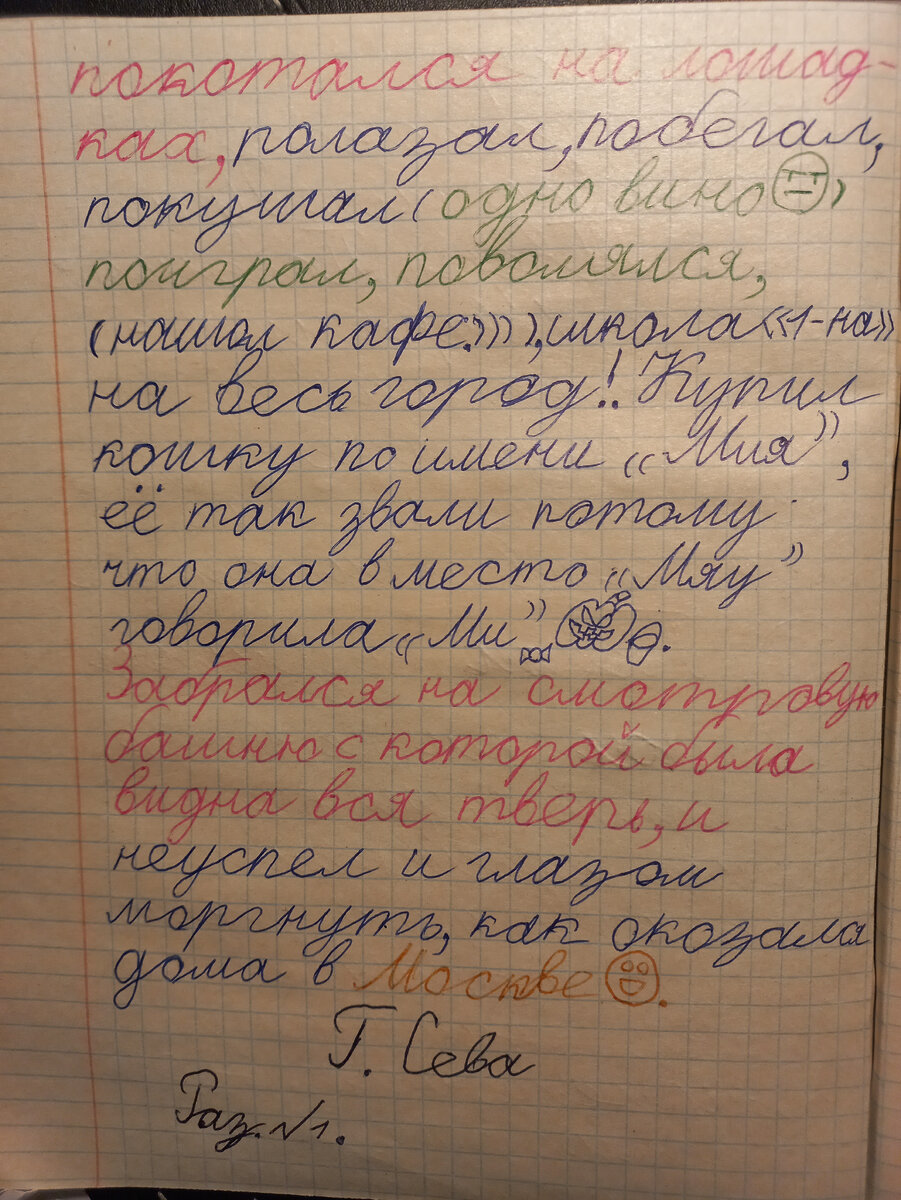 покотался на лошад-
ках, полазал, побегал,
покушал (одно вино)
поиграл, повалялся,
(нашол кафе:))), школа «1-на»
на весь город! Купил
кошку по имени „Мия”,
её так звали потому
что она в место „Мяу”
говорила „Ми”.
Забрался на смотровую
башню с которой была
видна вся тверь, и
неуспел и глазом
моргнуть, как оказала
дома в Москве.
Г. Сева
Раз. №1.